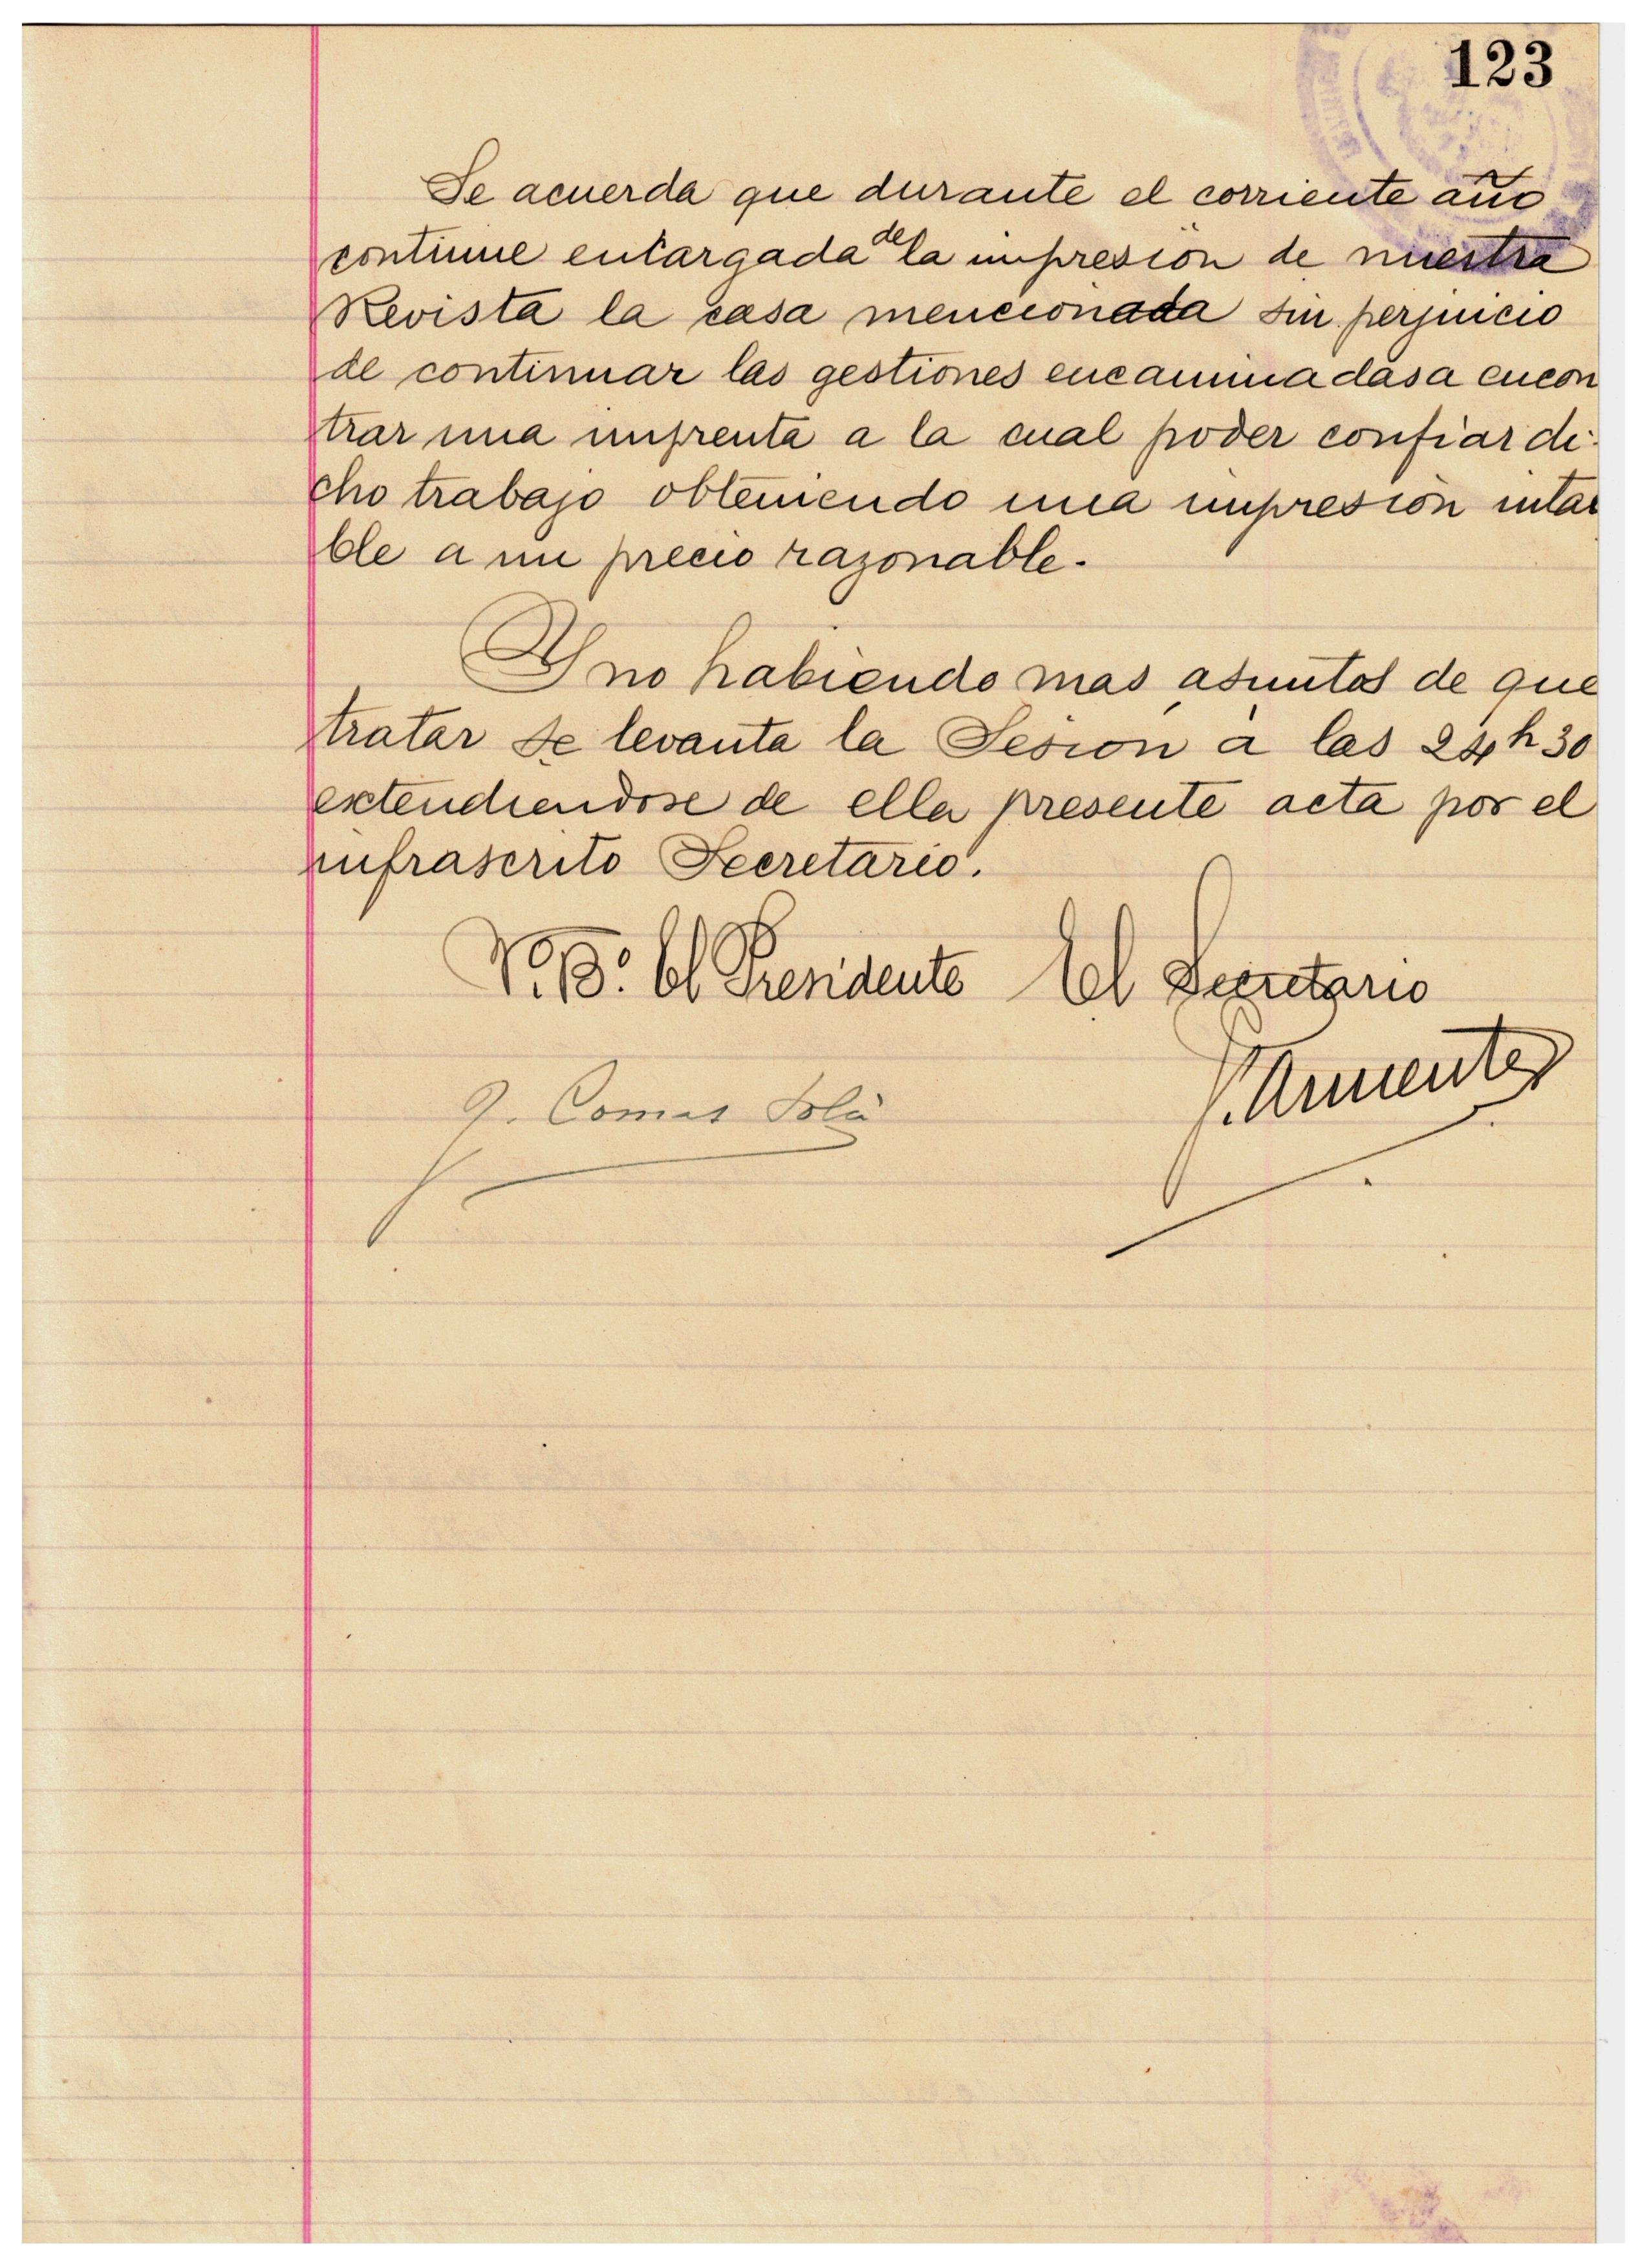 123
Se acuerda que durante el corriente año
continue encargada de la impresión de nuestra
Revista la casa mencionada sin perjuicio
de continuar las gestiones encaminadas a encon
trar una imprenta a la cual poder confiar di-
cho trabajo obteniendo una impresión
ble a un precio razonable.
Y no habiendo mas asuntos de que
tratar se levanta la Sesion á las 24h30
extendiendose de ella presente acta por el
infrascrito Secretario.
V.º B.º El Presidente El Secretario
J. Comas Solá
Armenter